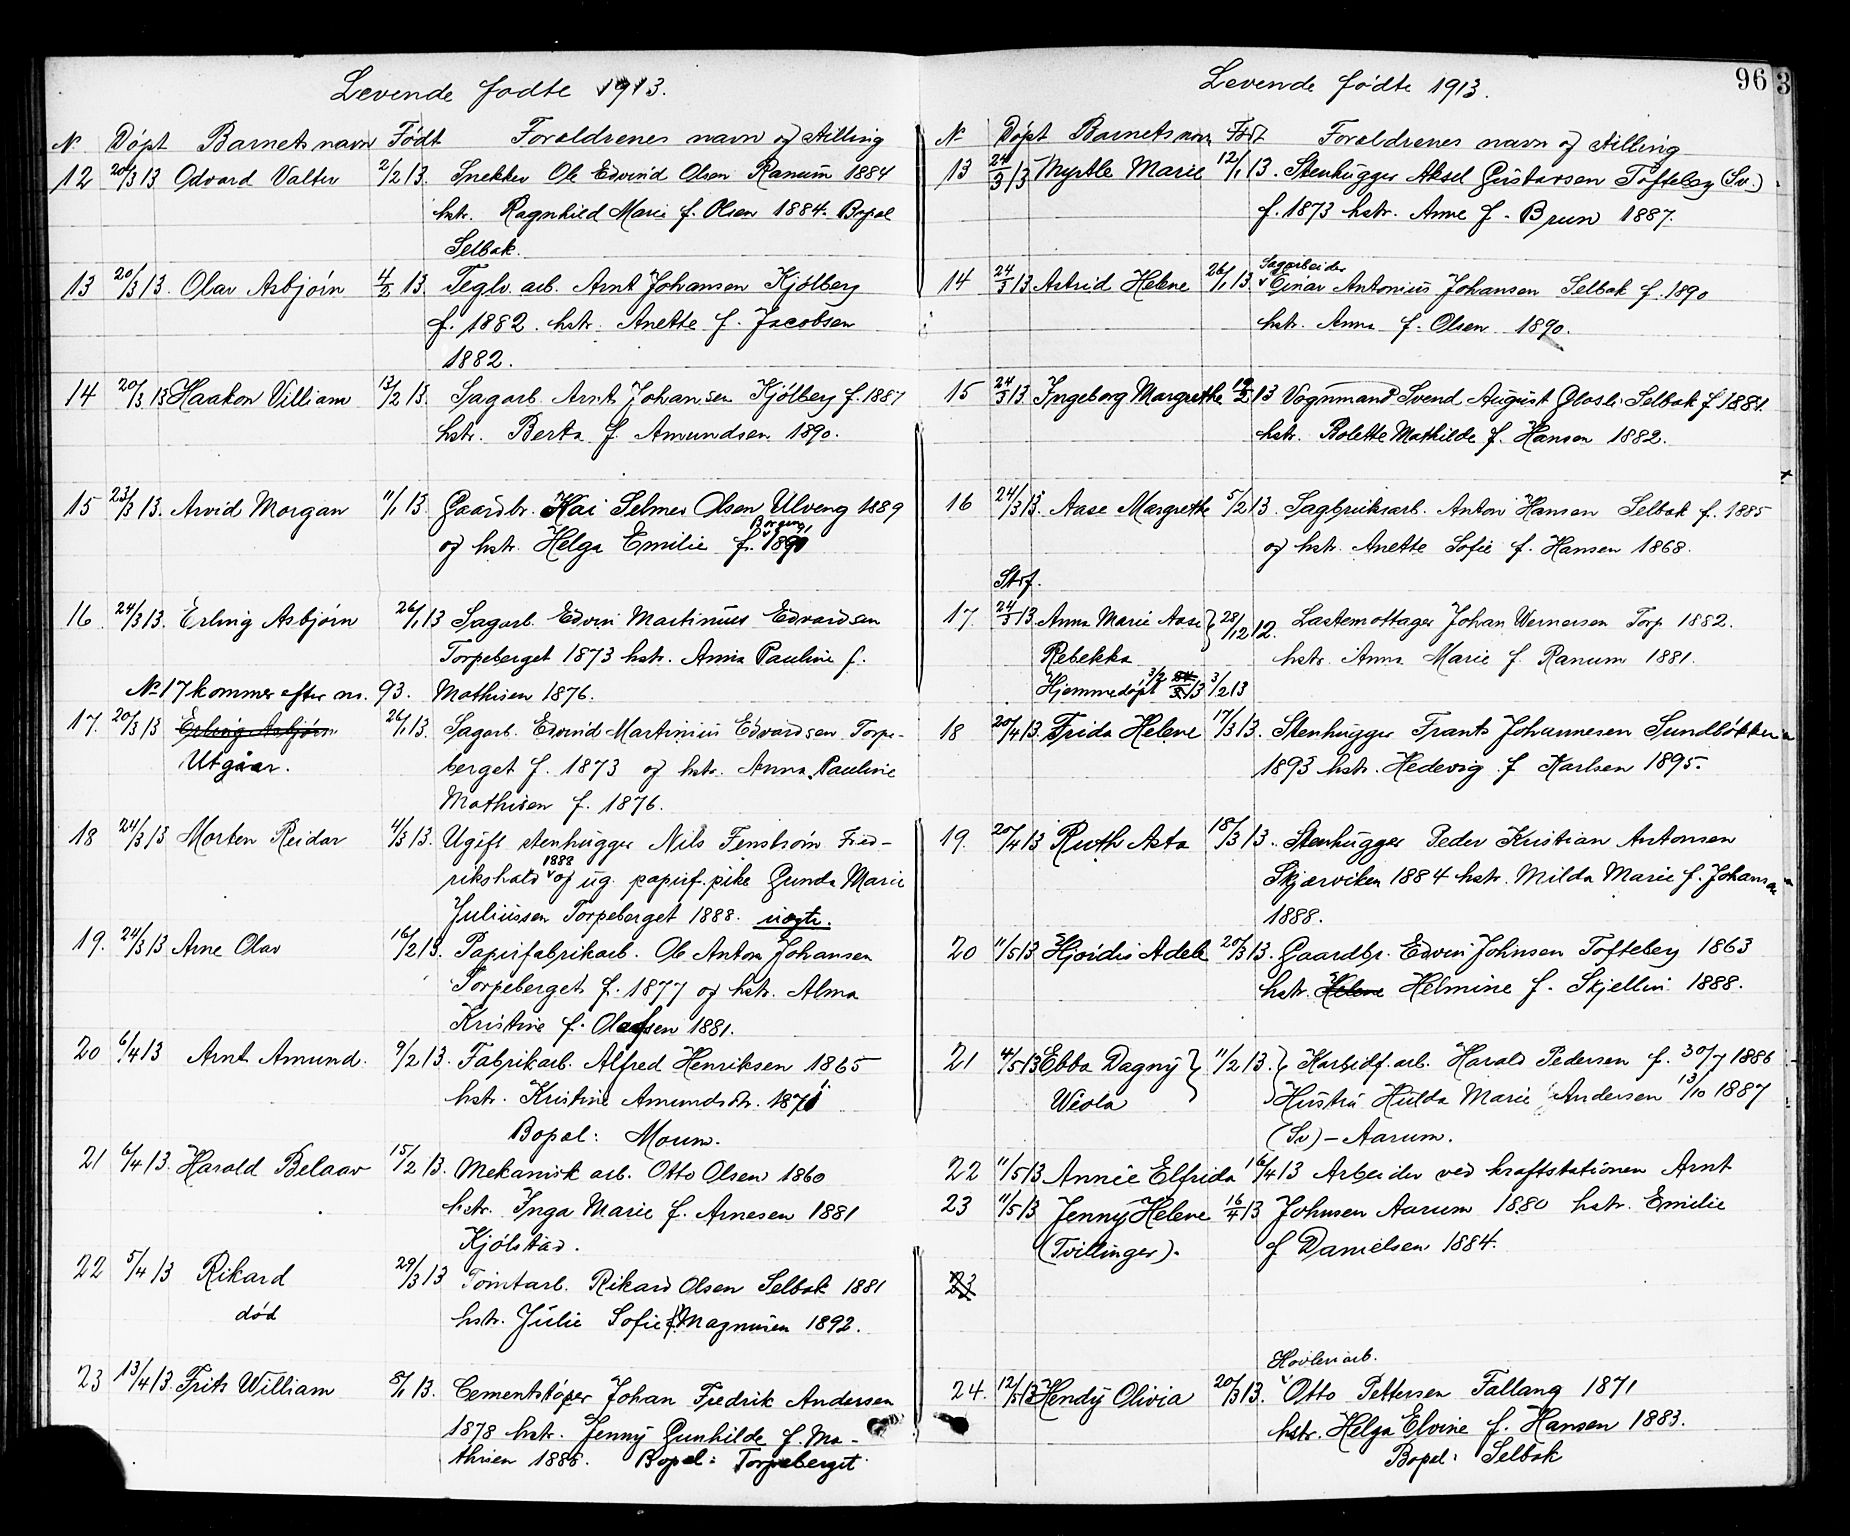 Levende fødte 1913.
N. Døpt Barnets navn Født Foreldrenes navn og stilling
12 20/3 13 Odvard Valter 2/2 13. Snekker Ole Edvind Olsen Ranum 1884
hstr. Ragnhild Marie f. Olsen 1884. Bopel
Selbak.
13 20/3 13. Olav Asbjørn 4/2 13. Teglv. arb. Arnt Johansen Kjølberg
f. 1882. hstr. Anette f. Jacobsen
1882.
14 20/3 13 Haakon Villiam 13/2 13. Sagarb. Arnt Johansen Kjølberg f. 1887
hstr. Berta f. Amundsen 1890.
15 23/3 13. Arvid Morgan 11/1 13. Gaardbr. Kai Selmer Olsen Ulveng 1889
Borgen
og hstr. Helga Emilie f. 1891
16 24/3 13. Erling Asbjørn 26/1 13 Sagarb. Edvin Martinius Edvardsen
Torpeberget 1873 hstr. Anna Pauline f.
No 17 kommer efter nr. 93. Mathisen 1876.
17. 20/3 13 Erling Asbjørn 26/1 13. Sagarb. Edvind Martinius Edvardsen Torpe-
Utgåar. berget f. 1873 og hstr. Anna Pauline
Mathisen f. 1876.
18 24/3 13 Morten Reidar 4/3 13. Ugift stenhugger Nils Fenstrøm Fred-
1888
rikshald og ug. papirf. pike Gunda Marie
Juliussen Torpeberget 1888. uægte.
19. 24/3 13 Arne Olav 16/2 13. Papirfabrikarb. Ole Anton Johansen
Torpeberget f. 1877 og hstr. Alma
Kristine f. Olafsen 1881.
20 6/4 13 Arnt Amund. 9/2 13. Fabrikarb. Alfred Henriksen 1865
hstr. Kristine Amundsdtr. 1871
Bopel: Moum.
21 6/4 13. Harald Belaar 15/2 13. Mekanisk arb. Otto Olsen 1860
hstr. Inga Marie f. Arnesen 1881
Kjølstad.
22 5/4 13 Rikard 29/3 13 Tomtarb. Rikard Olsen Selbak 1881
død hstr. Julie Sofie f. Magnusen 1892.
23 13/4 13 Frits William 8/1 13. Cementstøper Johan Fredrik Andersen
1878 hstr. Jenny Gunhilde f. Ma-
thisen 1888. Bopel: Torpeberget
96 3
Levende fødte 1913.
N. Døpt Barnets navn Født Foreldrenes navn og stilling
13 24/3 13 Myrtle Marie 12/1 13. Stenhugger Aksel Gustavsen Tofteberg (Sv.)
f. 1873 hstr. Anne f. Brun 1887.
Sagarbeider
14 24/3 13 Astrid Helene 26/1 13. Einar Antonius Johansen Selbak f. 1890
hstr. Anna f. Olsen 1890.
15 24/3 13. Ingeborg Margrethe 19/2 13 Vognmand Svend August Glosli Selbak f 1881.
hstr. Bolette Mathilde f. Hansen 1882.
16 24/3 13. Aase Margrethe 5/2 13. Sagbruksarb. Anton Hansen Selbak f. 1885
og hstr. Anette Sofie f. Hansen 1868.
Strf.
17. 24/3 13. Anna Marie Aase } 28/12 12. Lastemottager Johan Wernersen Torp 1882.
Rebekka hstr. Anna Marie f. Ranum 1881.
Hjemmedøpt 3/2 13 3/2 13
18 20/4 13. Frida Helene 17/3 13. Stenhugger Frants Johannesen Sundløkken
1893 hstr. Hedevig f Karlsen 1895.
19. 20/4 13 Ruth Asta 18/3 13. Stenhugger Peder Kristian Antonsen
Skjærviken 1884 hstr. Milda Marie f. Johansen
1888.
20 11/5 13 Hjørdis Adele 20/3 13. Gaardbr. Edvin Johnsen Tofteberg 1863
hstr. Helene Helmine f. Skjellin 1888.
21 4/5 13 Ebba Dagny } 11/2 13. } Karbidf. arb. Harald Pedersen f. 30/7 1886
Weola Hustru Hulda Marie Andersen 13/10 1887
(Sv) - Aarum.
22 11/5 13 Annie Elfrida 16/4 13 Arbeider ved kraftstationen Arnt
23 11/5 13 Jenny Helene 16/4 13 Johnsen Aarum 1880 hstr. Emilie
(Tvillinger). f Danielsen 1884.
23
Høvleriarb.
24. 12/5 13 Hendy Olivia 20/3 13. Otto Pettersen Fallang 1871
hstr. Helga Elvine f. Hansen 1883.
Bopel: Selbak